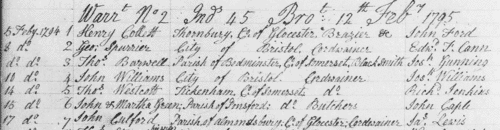 Warrt. No. 2 Ind 45 Brot. 12th Feby 1795
5 Feby. 1794 1 Henry Collett Thornbury, Co. of Glocester Brazier &c John Ford
8 do 2 Geo. Spurrier City of Bristol Cordwainer Edwd. T. Cann
do do 3 Thos. Barwell Parish of Bedminster Co. of Somerset, Black Smith Jos. Gunning
10 do 4 John Williams City of Bristol Cordwainer Jos. Williams
14 do 5 Thos. Westcott Tickenham, Co. of Somerset do Richd. Jenkins
16 do 6 John & Martha Green, Parish of do Butchers John Caple
17 do 7 John Parish of almondsbury Co. of Glocester Cordwainer Jas. Lewis